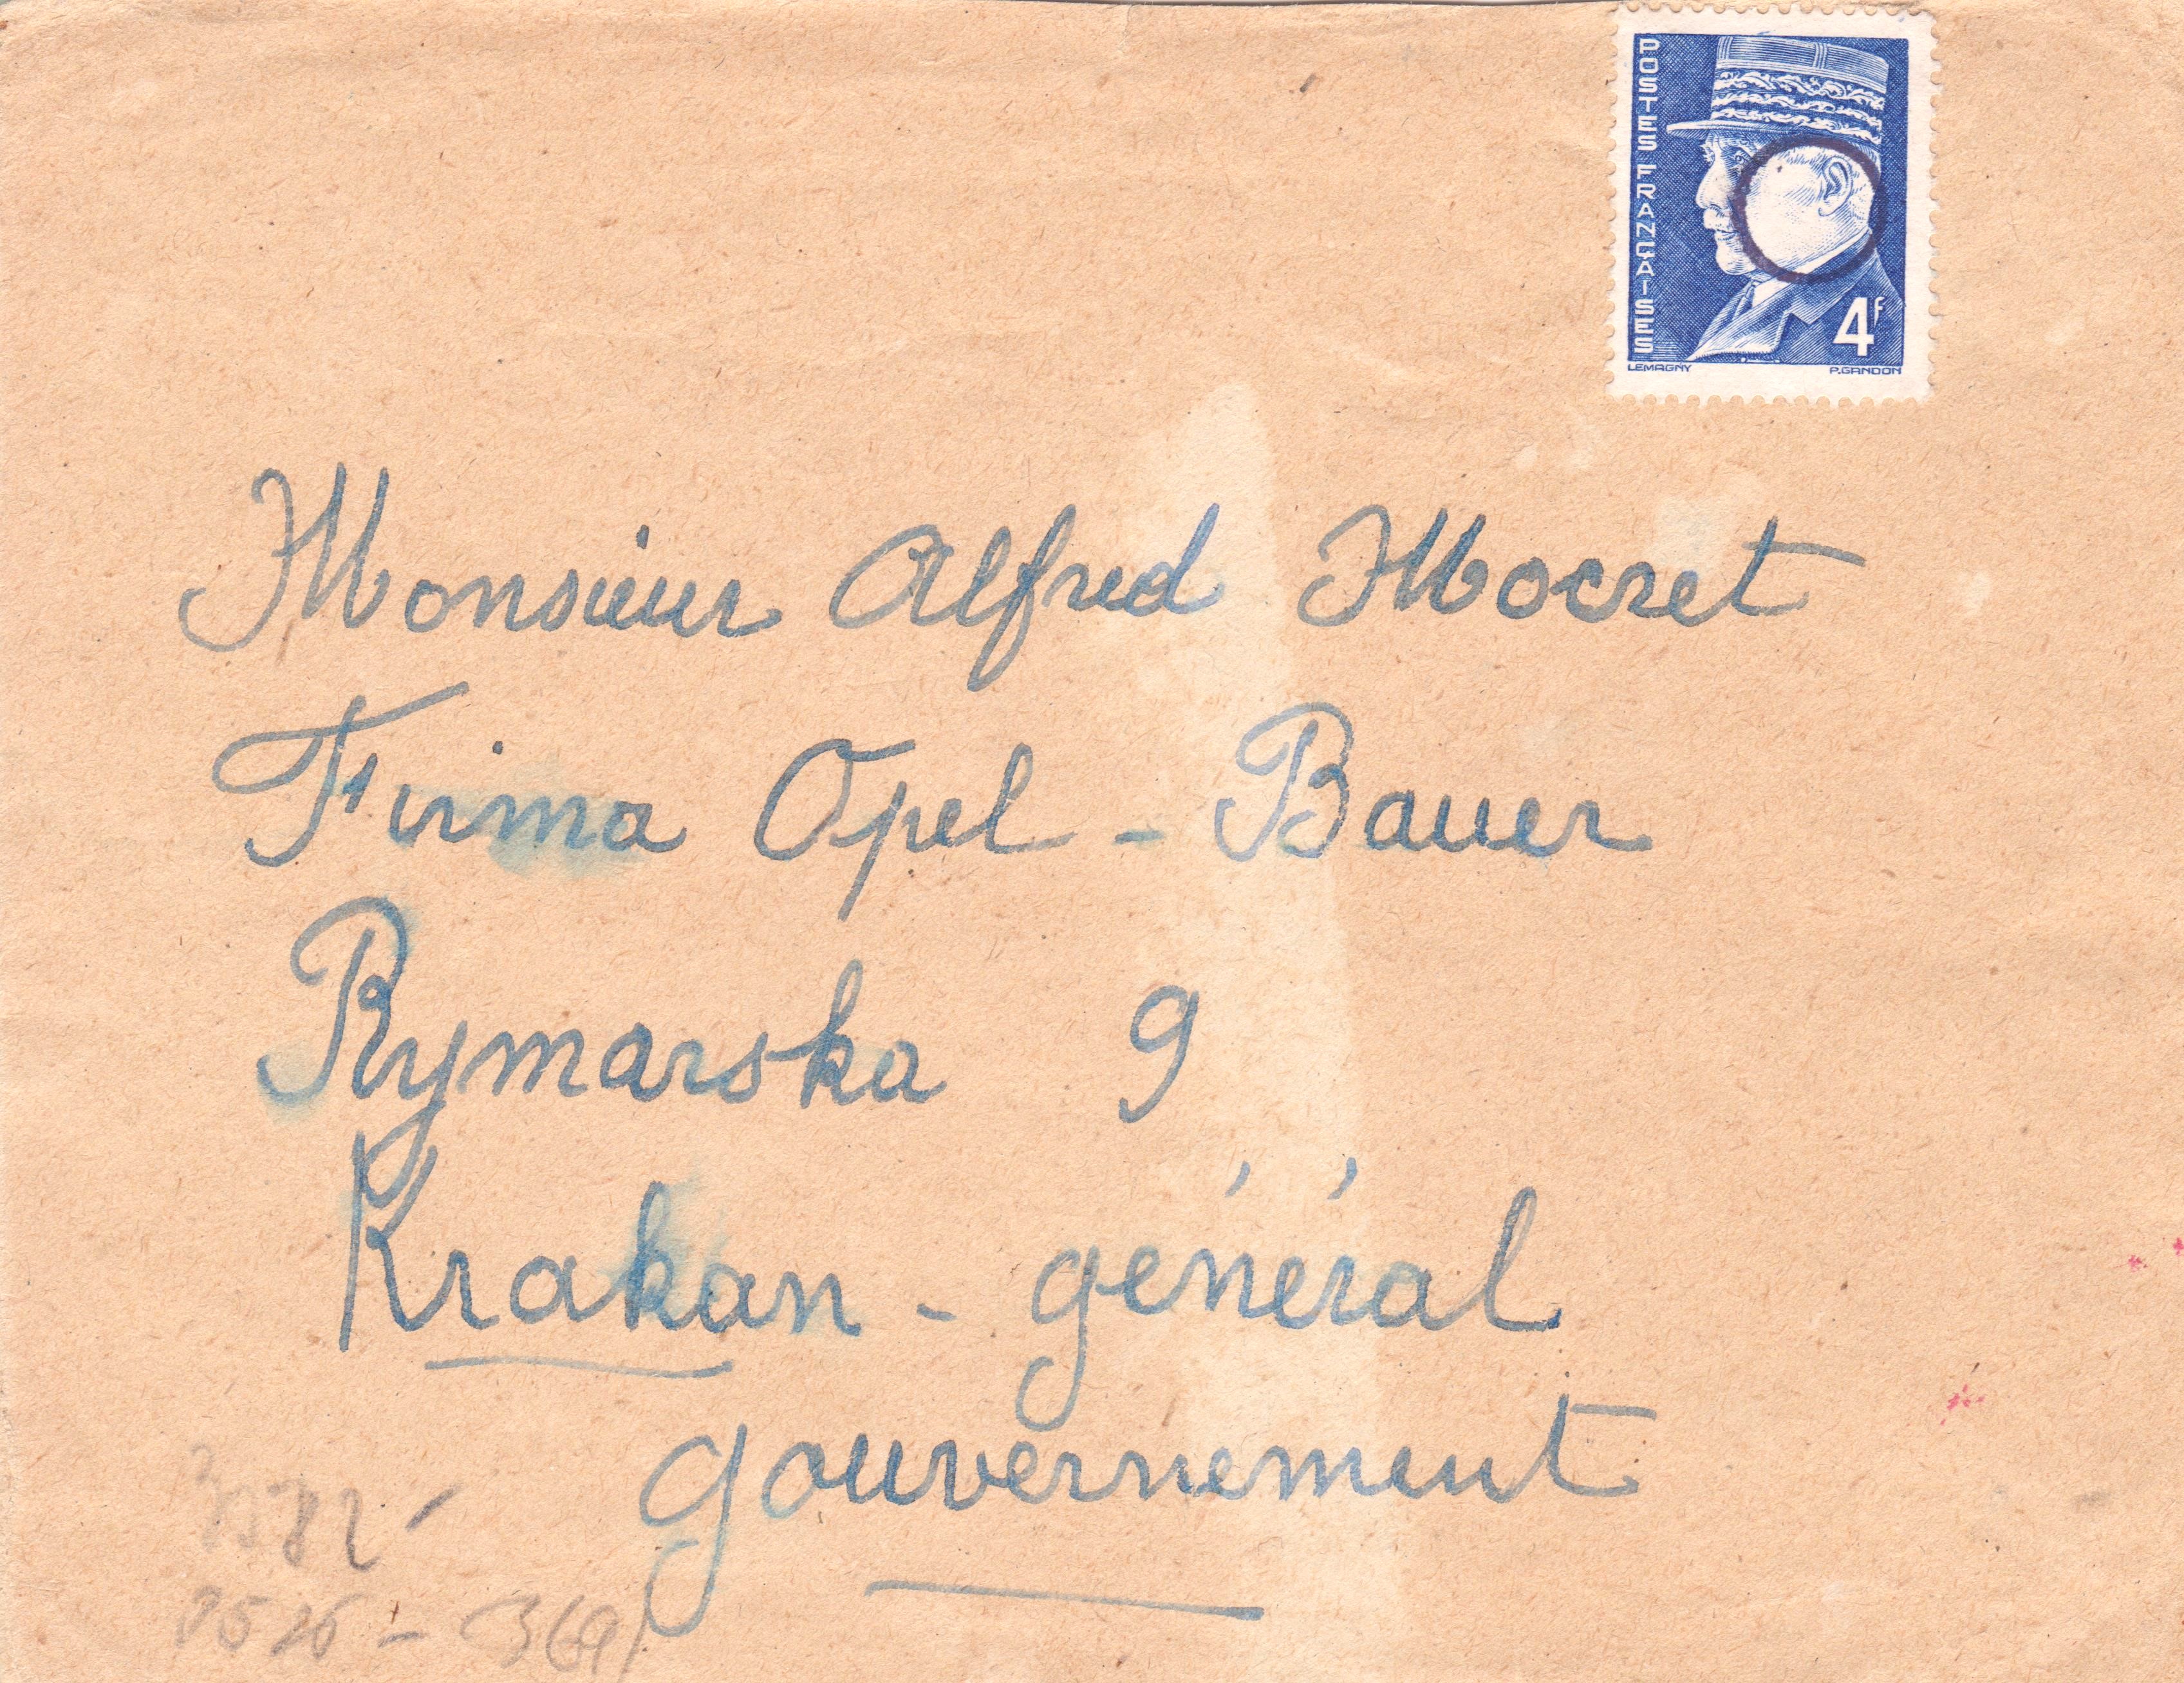 POSTES FRANÇAISES
4F
LEMAGNY P.GANDON
Monsieur Alfred Mocret
Firma Opel - Bauer
Rymarska 9
Krakan - général
gouvernement